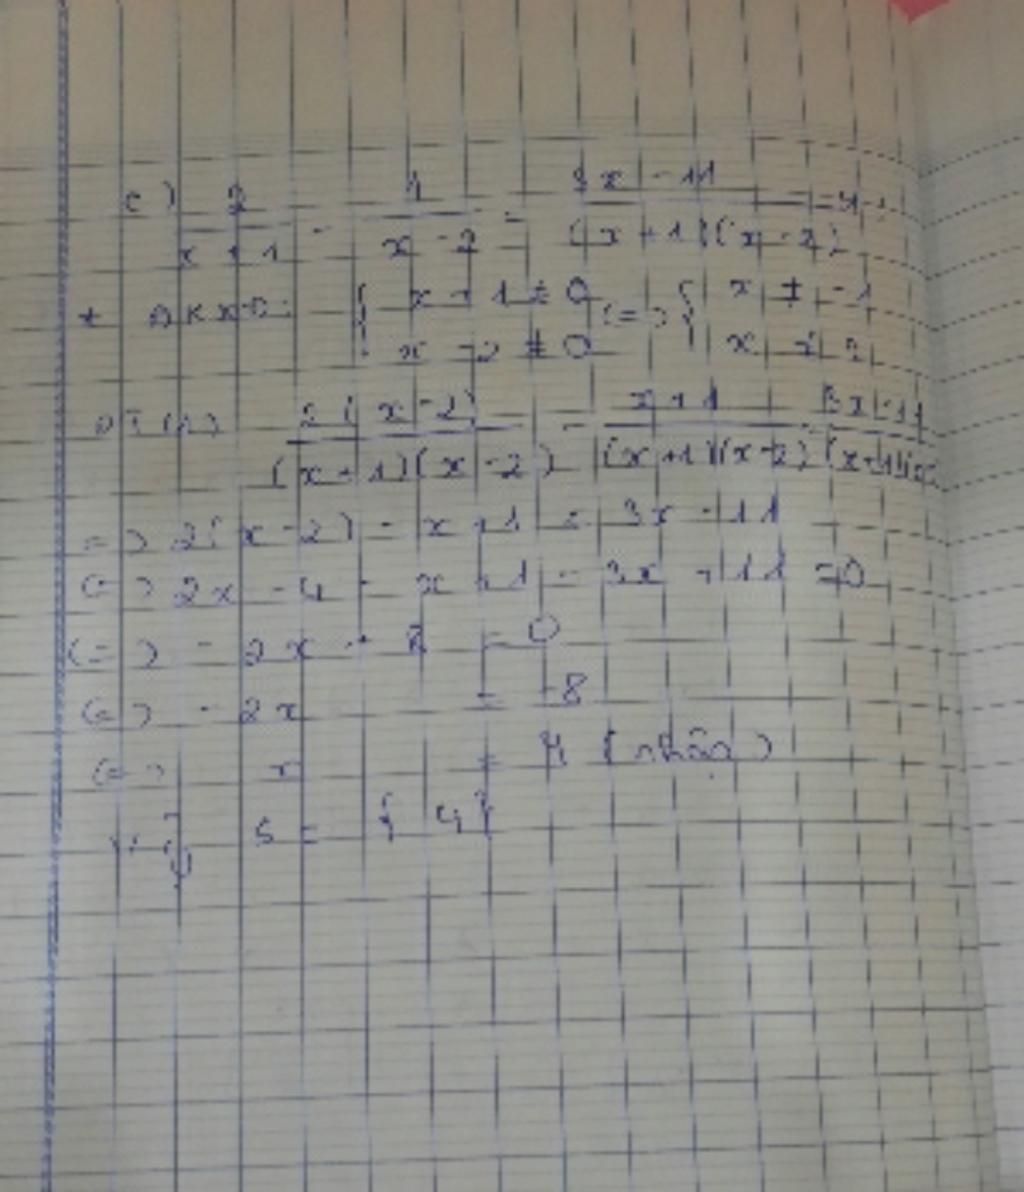 c) 2/(x+1) - 1/(x-2) = (3x-11)/((x+1)(x-2))
* ĐKXĐ: { x+1 ≠ 0 (=) { x ≠ -1
x-2 ≠ 0 x ≠ 2
2(x-2)/((x+1)(x-2)) - (x+1)/((x+1)(x-2)) (3x-11)/((x+1)(x
=) 2(x-2) - x+1 = 3x-11
(=) 2x - 4 - x + 1 - 3x + 11 = 0
(=) - 2x + 8 = 0
(=) - 2x = -8
(=) x = 4 (nhận)
Vậy S = { 4 }